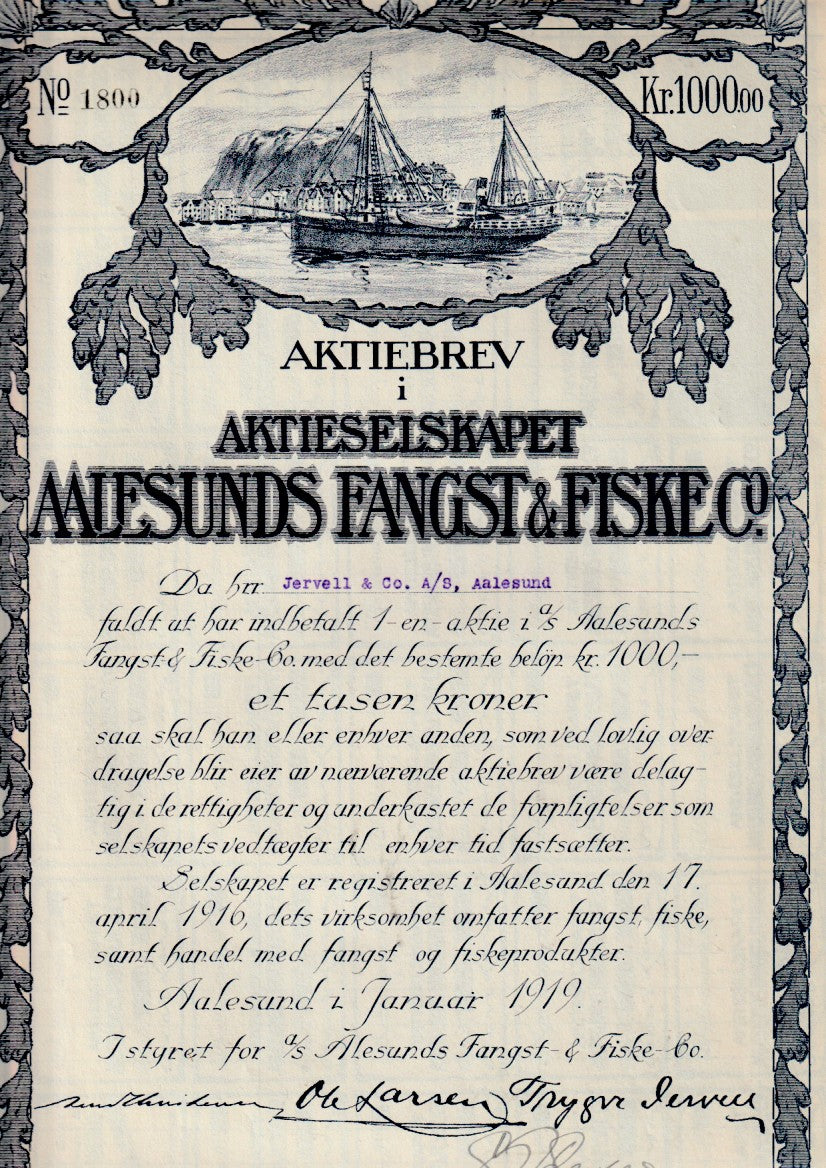 Nº 1800
Kr. 1000.00
AKTIEBREV
i
AKTIESELSKAPET
AALESUNDS FANGST & FISKE Cº.
Da hrr. Jervell & Co. A/S, Aalesund
fuldt ut har indbetalt 1-en-aktie i a/s Aalesunds
Fangst-& Fiske-Co. med det bestemte beløp kr. 1000,-
et tusen kroner
saa skal han eller enhver anden, som ved lovlig over-
dragelse blir eier av nærværende aktiebrev være delag-
tig i de rettigheter og underkastet de forpligtelser som
selskapets vedtægter til enhver tid fastsætter.
Selskapet er registreret i Aalesund den 17.
april 1916, dets virksomhet omfatter fangst, fiske,
samt handel med fangst og fiskeprodukter.
Aalesund i Januar 1919.
I styret for a/s Alesunds Fangst-& Fiske-Co.
Ole Larsen Trygve Jervell